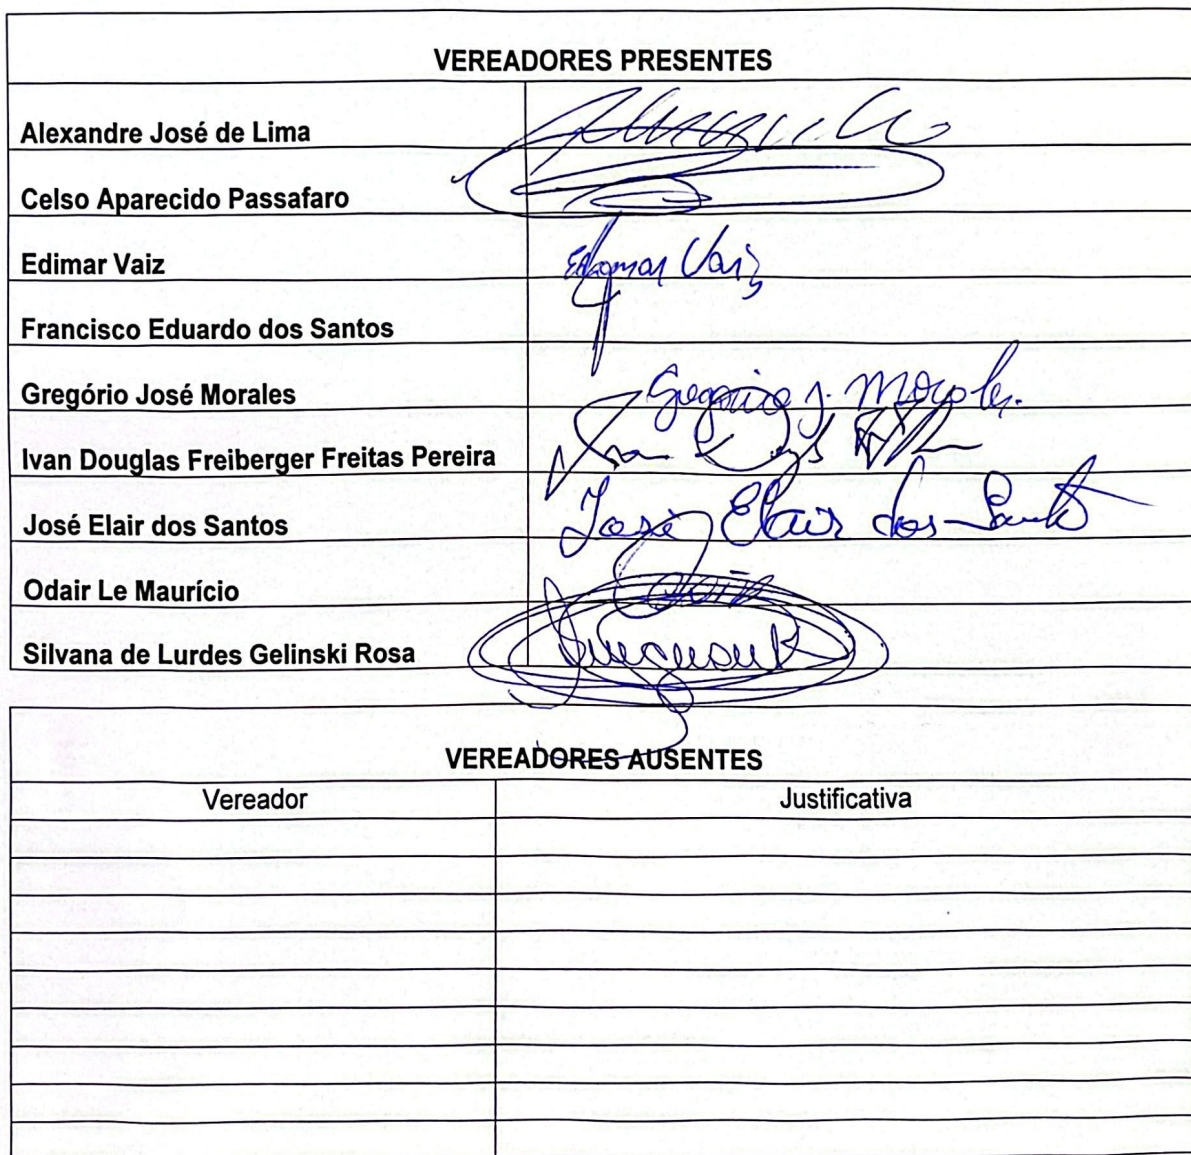 VEREADORES PRESENTES
Alexandre José de Lima
Celso Aparecido Passafaro
Edimar Vaiz Edimar Vaiz
Francisco Eduardo dos Santos
Gregório José Morales Gregório J. Morales.
Ivan Douglas Freiberger Freitas Pereira
José Elair dos Santos José Elair dos Santos
Odair Le Maurício
Silvana de Lurdes Gelinski Rosa
VEREADORES AUSENTES
Vereador Justificativa